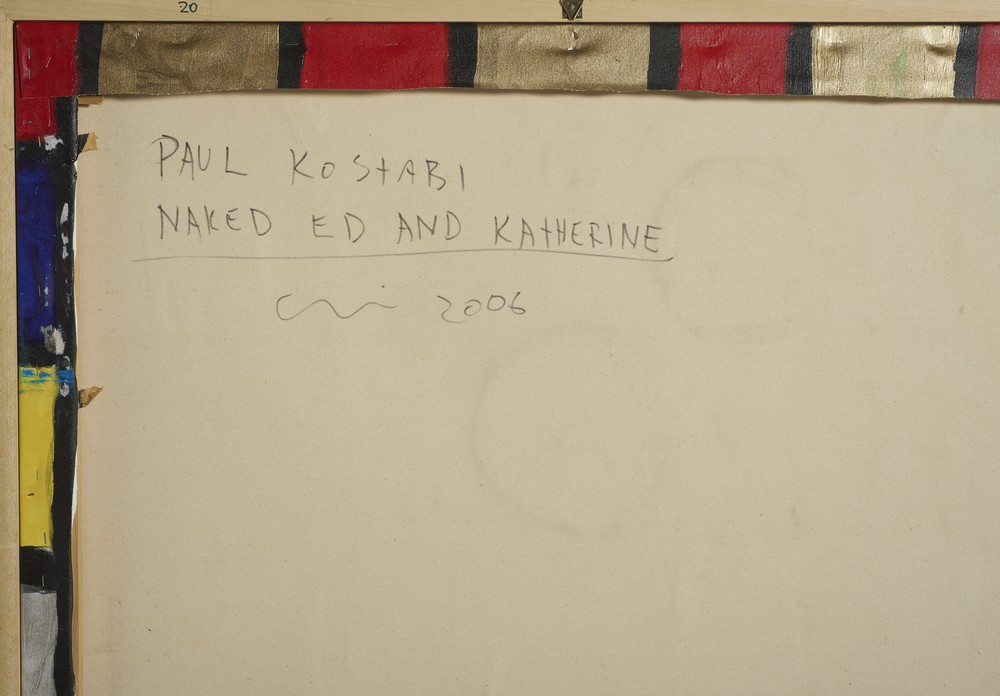 20
PAUL KOSTABI
NAKED ED AND KATHERINE
2006